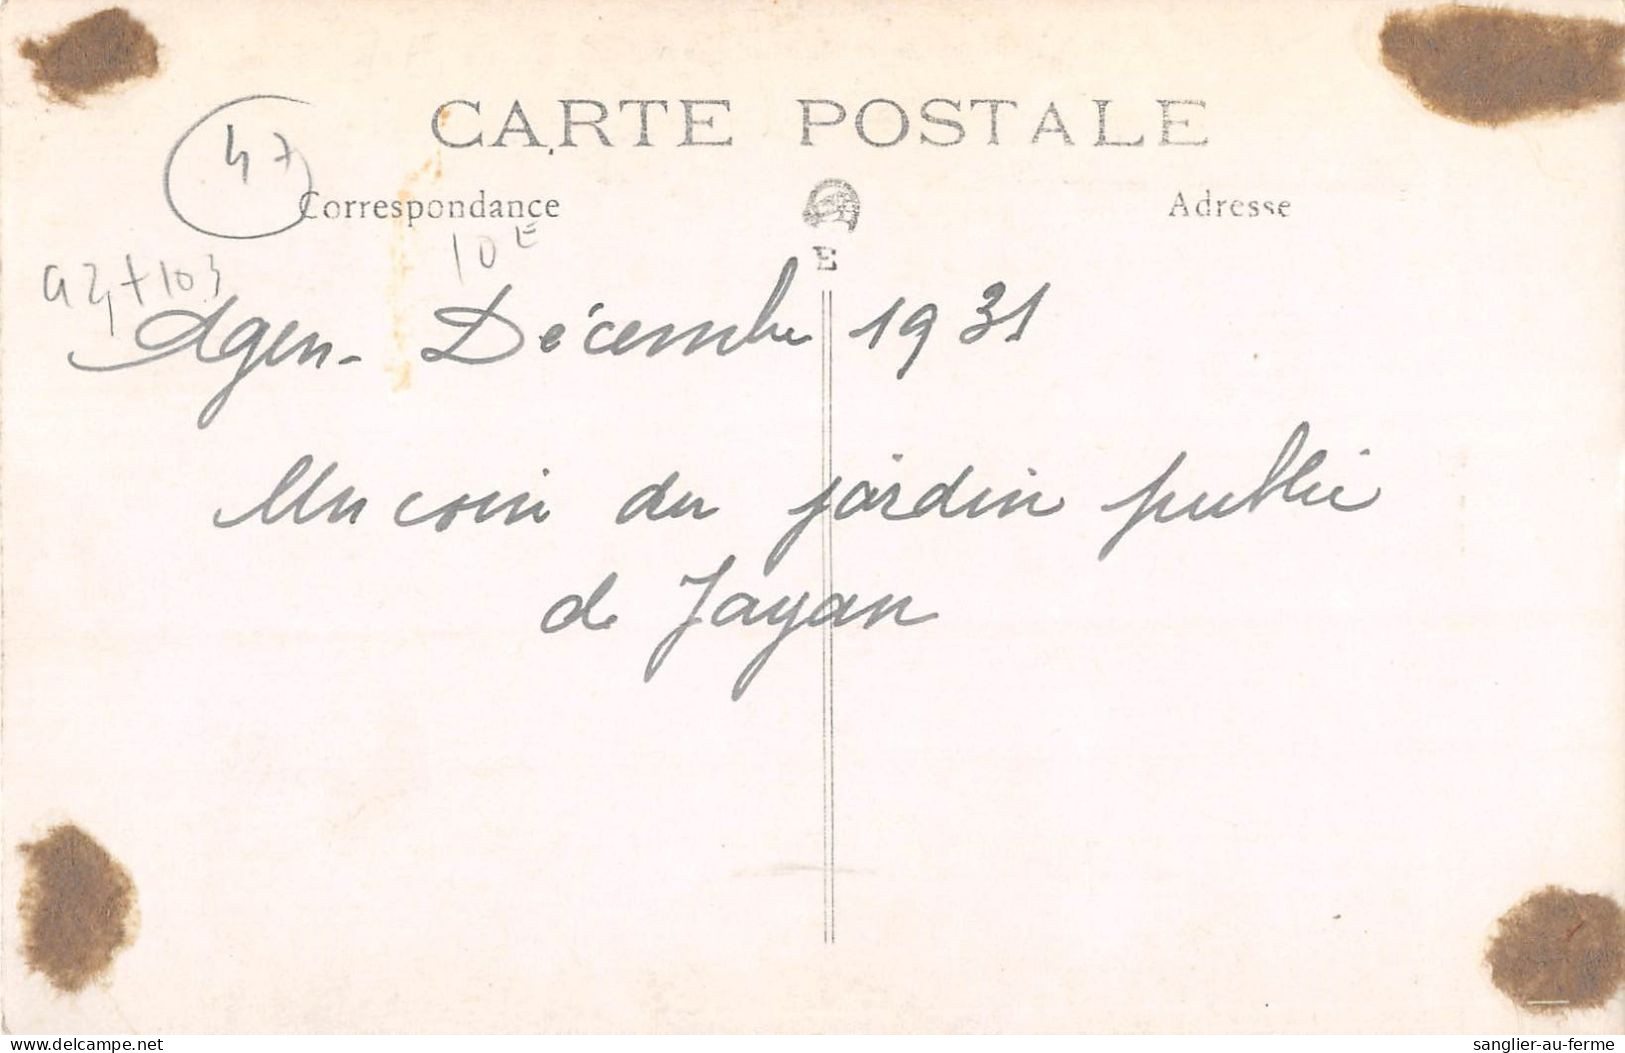 CARTE POSTALE
47
Correspondance
Adresse
10E
E
Agen - Décembre 1931
Un coin du jardin public
de Jayan
www.delcampe.net
sanglier-au-ferme